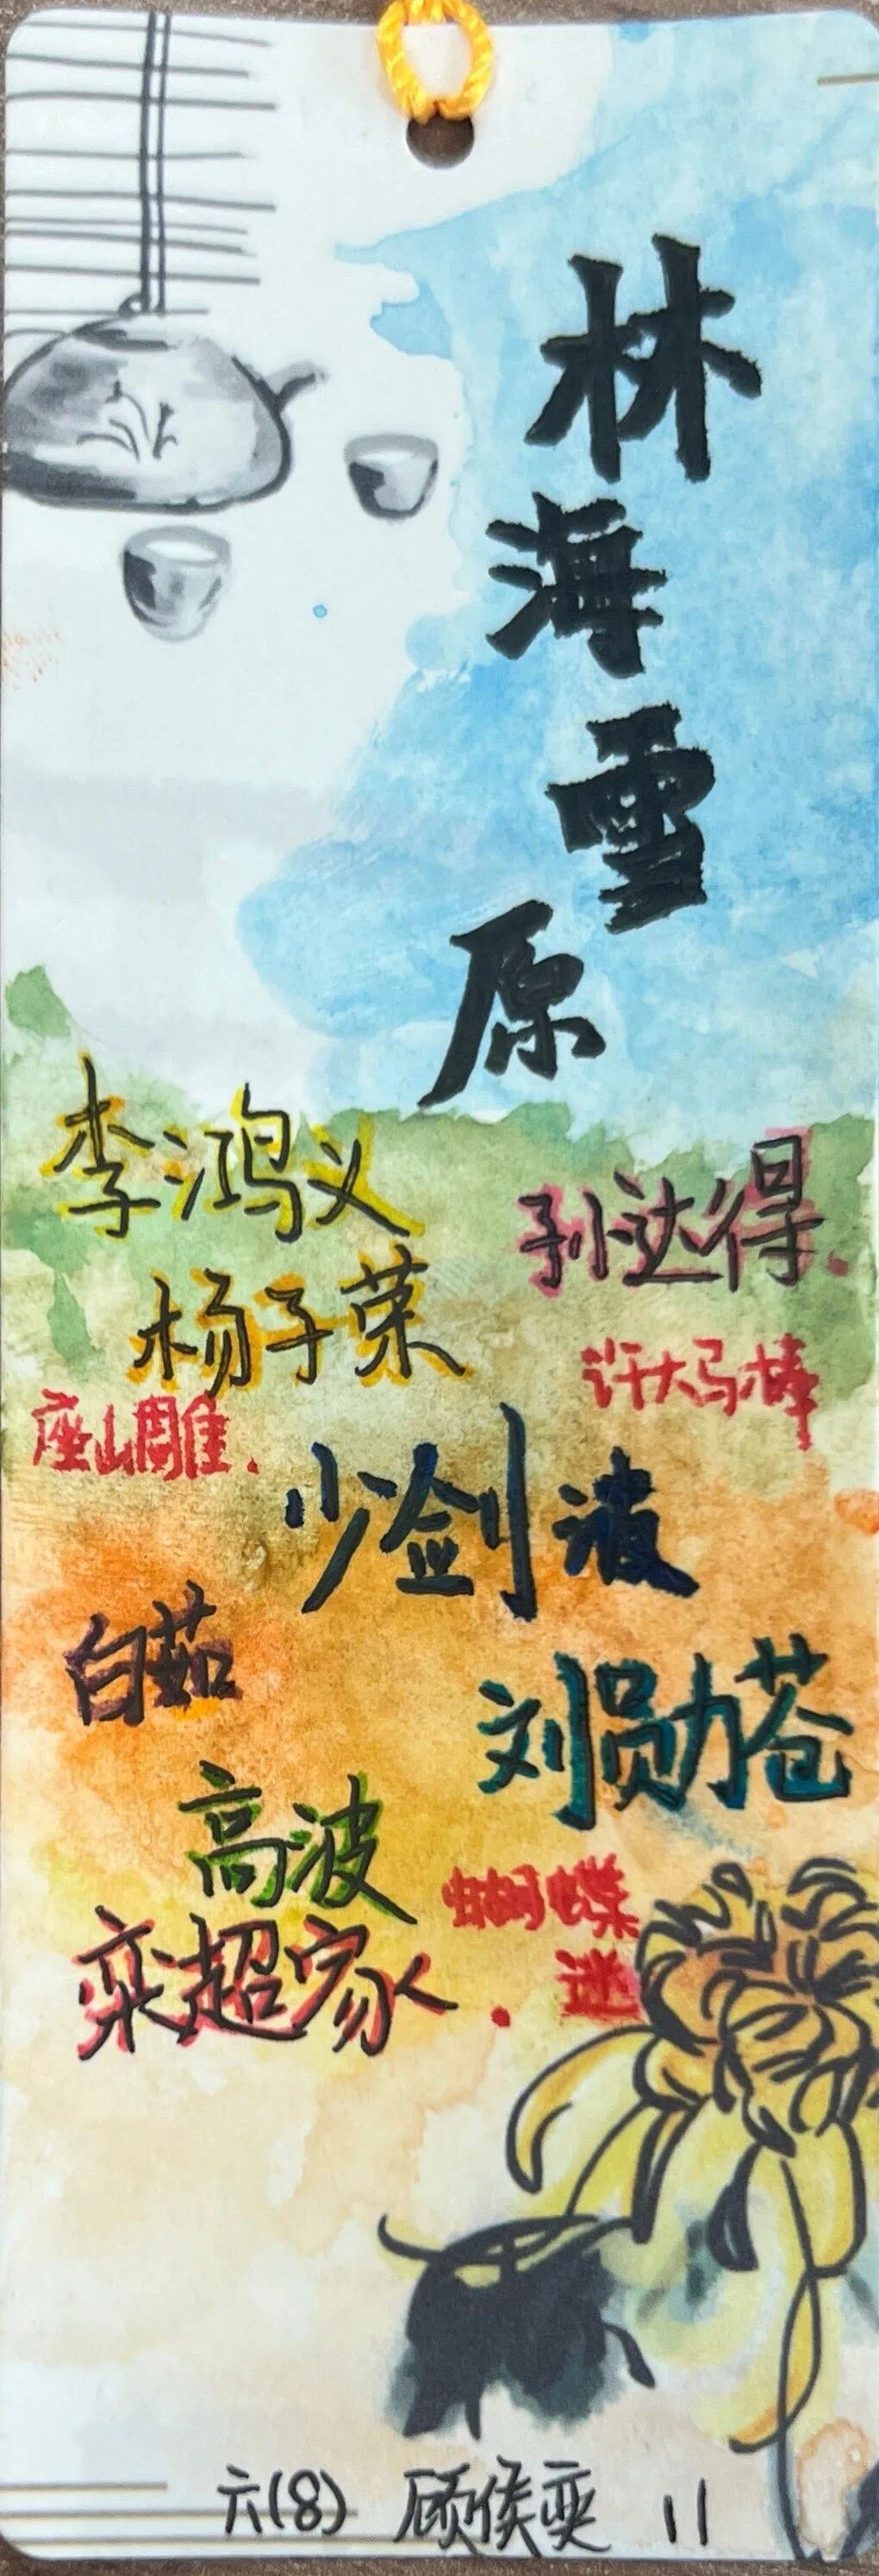 林海雪原
李鸿义
孙达得
杨子荣
许大马棒
座山雕
少剑波
白茹
刘勋苍
高波
蝴蝶迷
栾超家
六(8) 顾侯奕 11